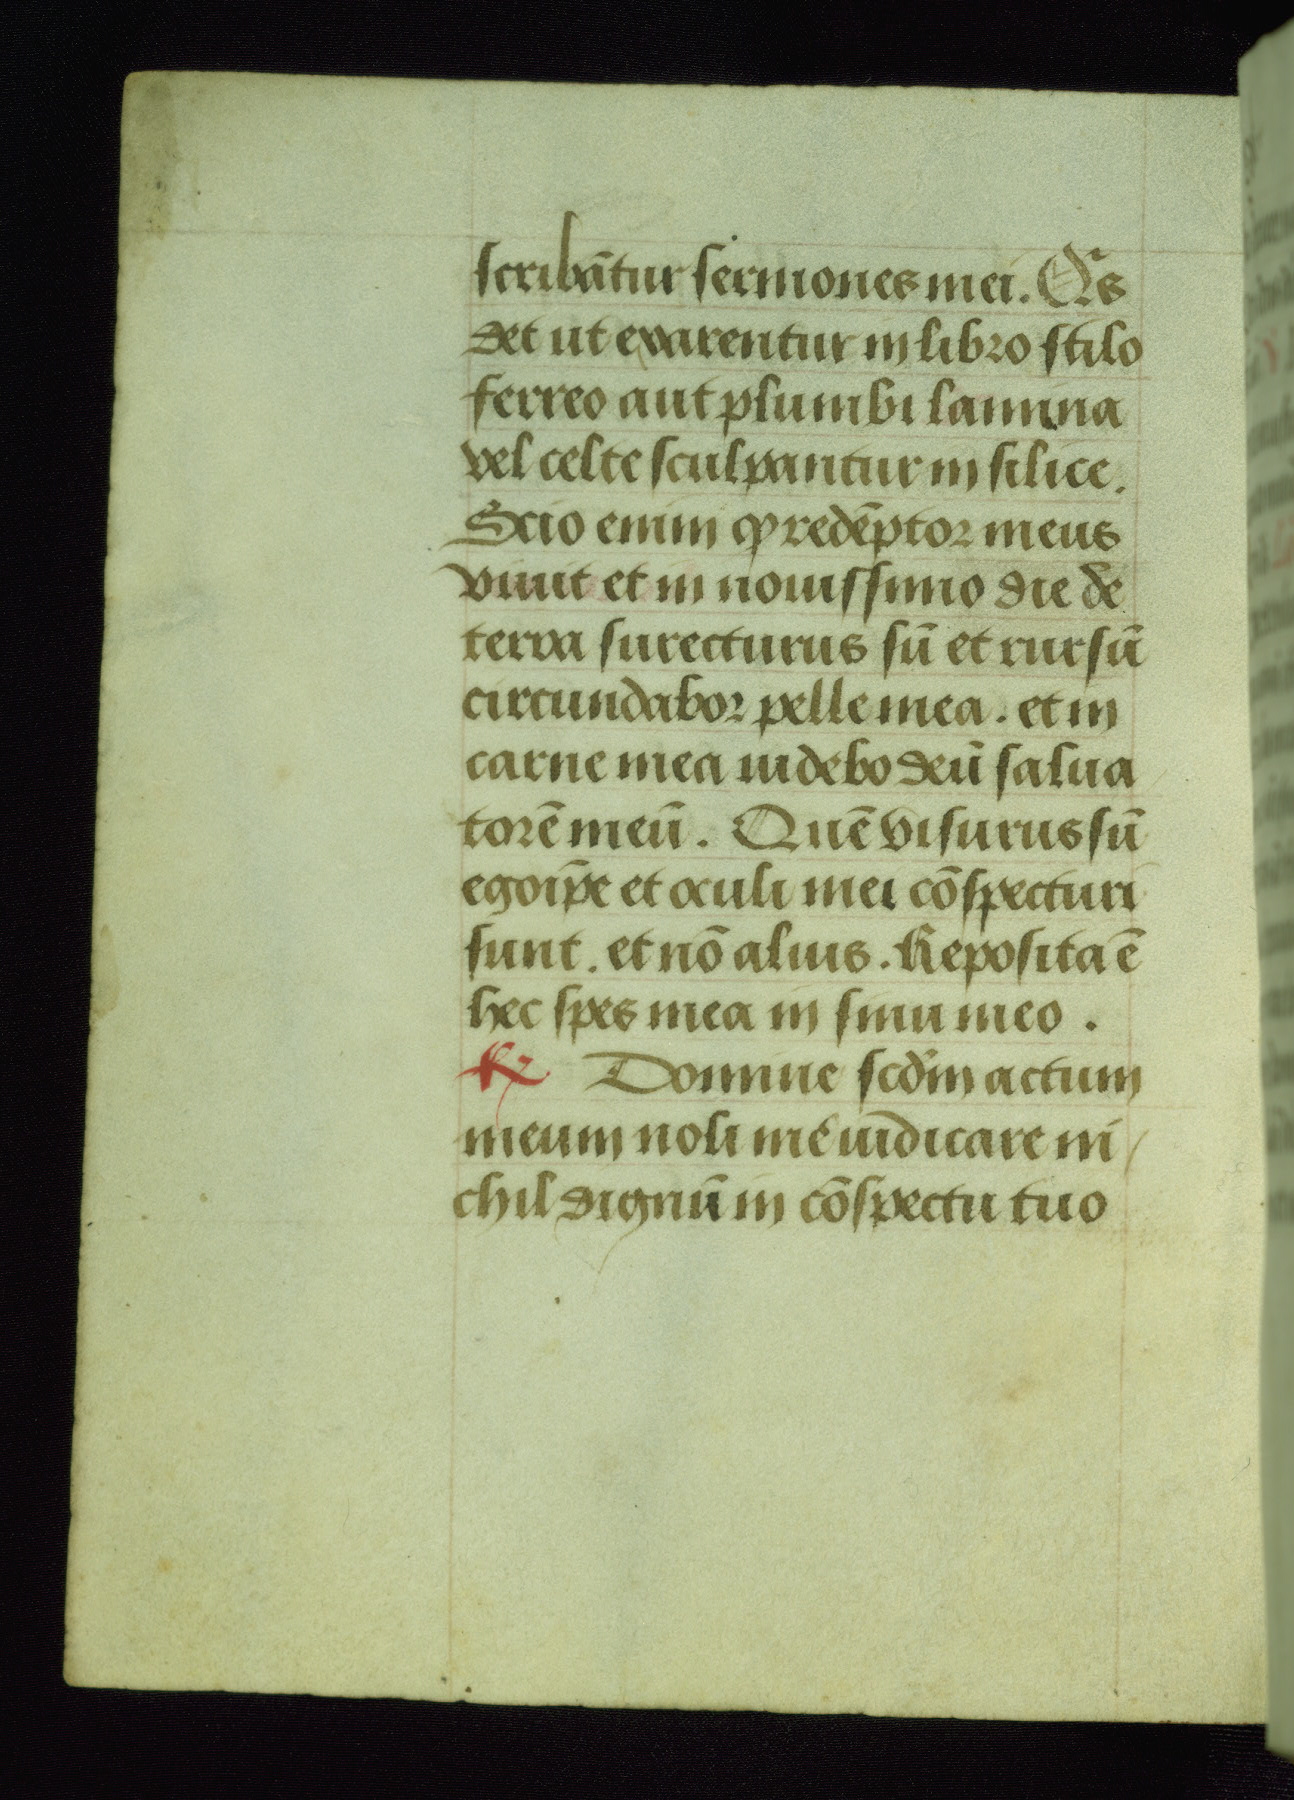 scribātur sermones mei. Qˢ
det ut exarentur in libro stilo
ferreo aut plumbi lamina
vel celte sculpantur in silice.
Scio enim ꝙ redēptor meus
viuit et in nouissimo die de
terra surecturus sū et rursū
circundabor pelle mea. et in
carne mea uidebo deū salua
torē meū. Quē visurus sū
ego ip̄e et oculi mei cōspecturi
sunt. et nō alius. Reposita ē
hec spes mea in sinu meo.
℟ Domine scd̄m actum
meum noli me iudicare ni
chil dignū in cōspectu tuo